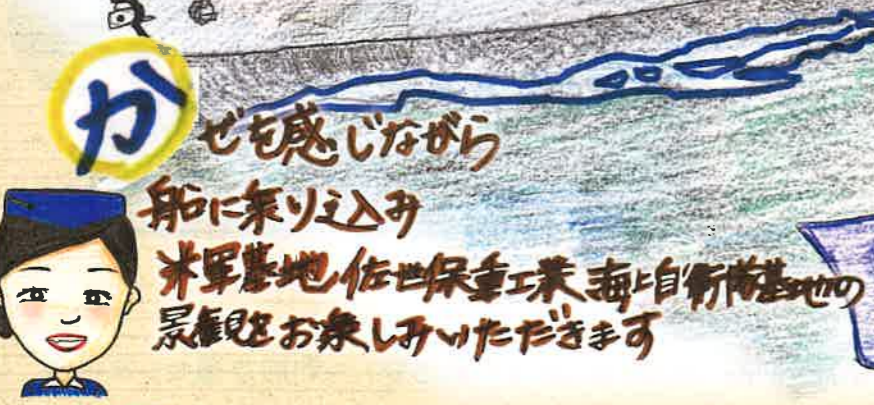 かぜを感じながら
船に乗り込み
米軍基地 佐世保重工業 海上自衛隊基地の
景観をお楽しみいただきます